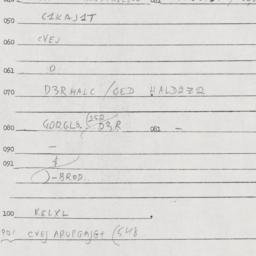 050 C1KAJ1T
060 CVEJ
061 0
070 D3RHALC / GED HALD3ZR
080 GORGLS. D3R 081 -
090 -
091 1
-BROD.
100 KELXL
CVEJ ADUPGAJGT (548